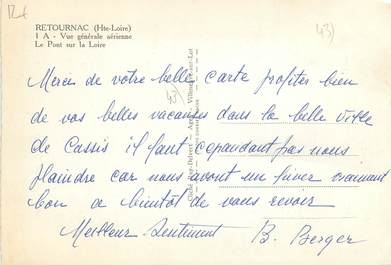 RETOURNAC (Hte-Loire)
1 A - Vue générale aérienne
Le Pont sur la Loire
43)
Merci de votre belle carte profiter bien
de vos belles vacances dans la belle ville
de Cassis il faut cependant pas nous
plaindre car nous avont un hiver vraimant
bon a bientôt de vous revoir
Meilleur Sentiment B. Berger